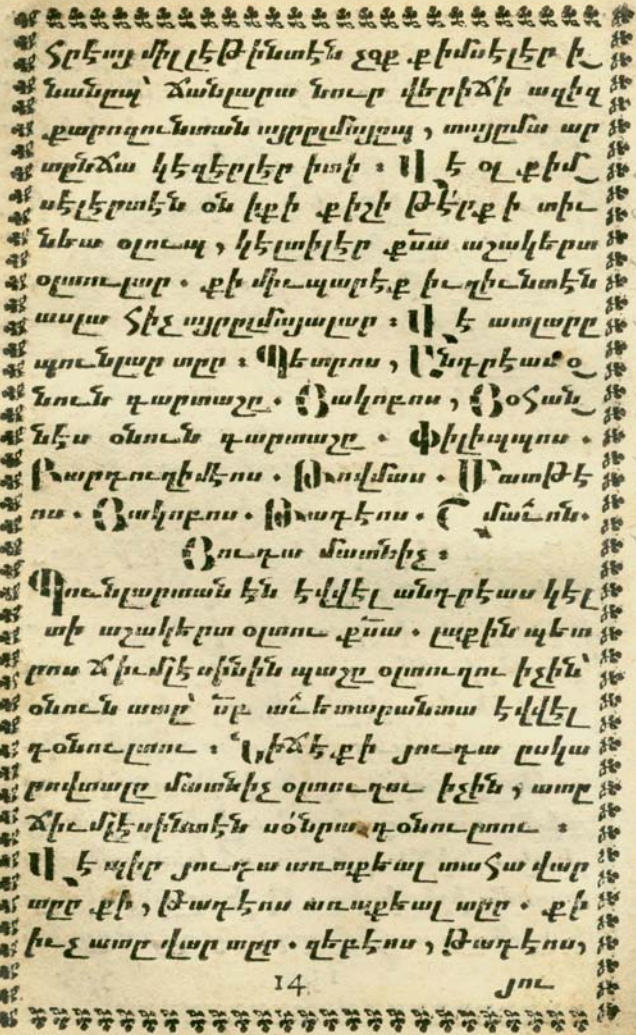 Հրէայ միլլէթինտէն չօք քիմսէլէր ի_
նանըպ՝ ճանլարա նուր վերիճի ազիզ
քարոզունտան այրըլմիյըպ, տայըմա ար
տընճա կէզէրլէր իտի ։ Ա՛յէ օլ քիմ_
սէլէրտէն օն իքի քիշի թէրք ի տիւ
նեա օլուպ, կէլտիլէր քն̄ա աշակերտ
օլտուլար. քի միւպարէք իւզիւնտէն
ասլա հիչ այրըլմիյալար ։ Վէ ատլարը
պունլար տըր ։ Պետրոս, Անդրէաս օ_
նուն գարտաշը. Յակոբոս, Յօհան_
նէս օնուն գարտաշը. Փիլիպպոս.
Բարդուղիմէոս. Թովմաս. Մատթէ
ոս. Յակոբոս. Թադէոս. Սիմաւոն.
Յուդա մատնիչ։
Պունլարտան էն էվվէլ անդրէաս կէլ
տի աշակերտ օլտու քն̄ա. լաքին պետ
րոս ճիւմլէսինին պաշը օլտուղու իչին՝
օնուն ատը՝ ս̄բ աւետարանտա էվվէլ
գօնուլտու ։ Նիճէքի յուդա ըսկա
րովտալը մատնիչ օլտուղու իչին, ատը
ճիւմլէսինտէն սօնրա գօնուլտու ։
Վէ պիր յուդա առաքեալ տահա վար
տըր քի, թադէոս առաքեալ տըր. քի
իւչ ատը վար տըր. զեբէոս, թադէոս,
14 յու